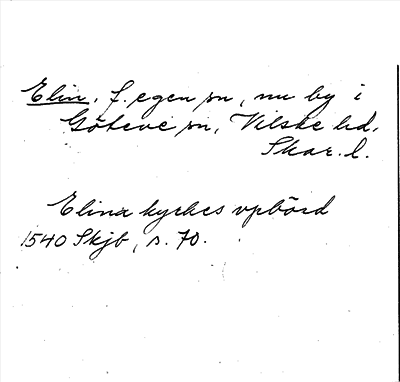 Elin, f. egen sn, nu by i
Göteve sn, Vilske hd.
Skar. l.
Elina kyrkes vpbörd
1540 Skjb, s. 70.